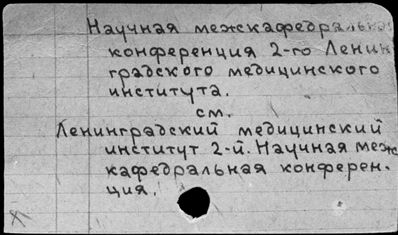 Научная межкафедральная
конференция 2-го Ленин
градского медицинского
института.
см.
Ленинградский медицинский
институт 2-й. Научная меж
кафедральная конферен-
ция.